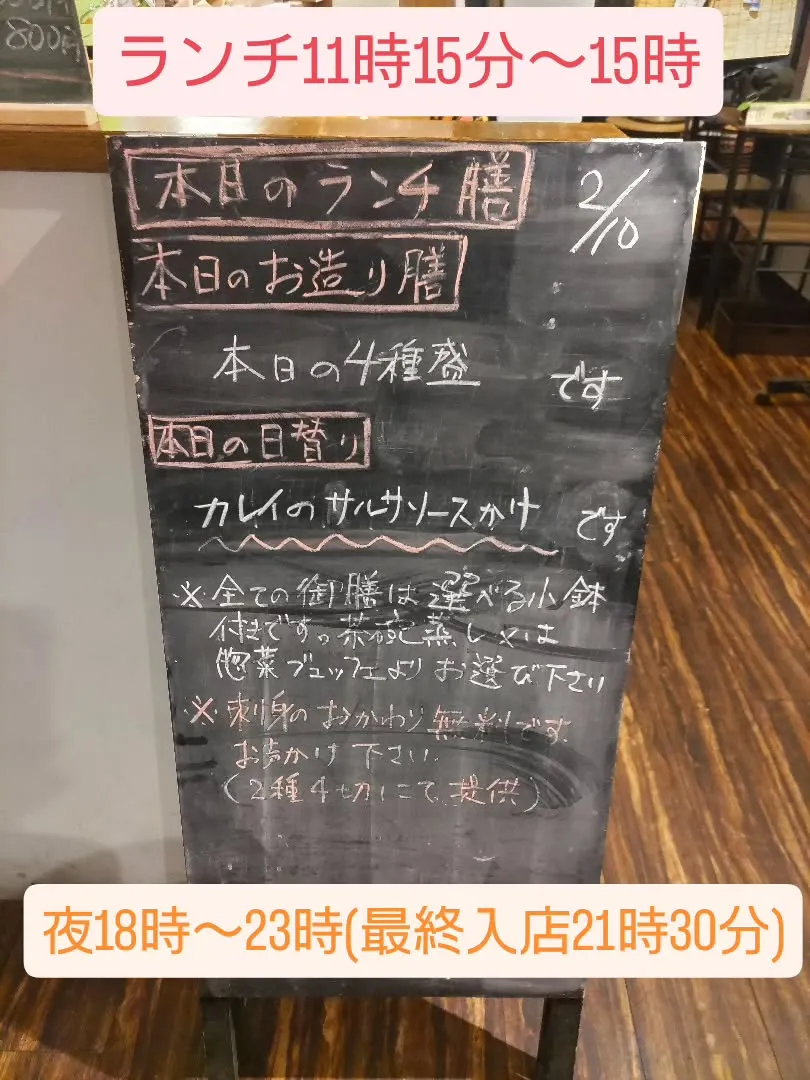 800円
ランチ11時15分～15時
本日のランチ膳
2/10
本日のお造り膳
本日の4種盛 です
本日の日替り
カレイのサルサソースかけ です
※全ての御膳は選べる小鉢
付きです。茶碗蒸し又は
惣菜ブュッフェよりお選び下さい
※刺身のおかわり無料です
お声かけ下さい
(2種4切にて提供)
夜18時～23時(最終入店21時30分)